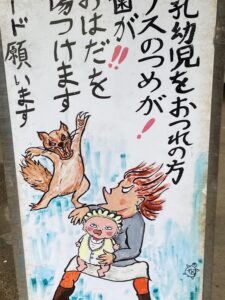 乳幼児をおつれの方
リスのつめが!
歯が!!
おはだを
傷つけます
ド願います